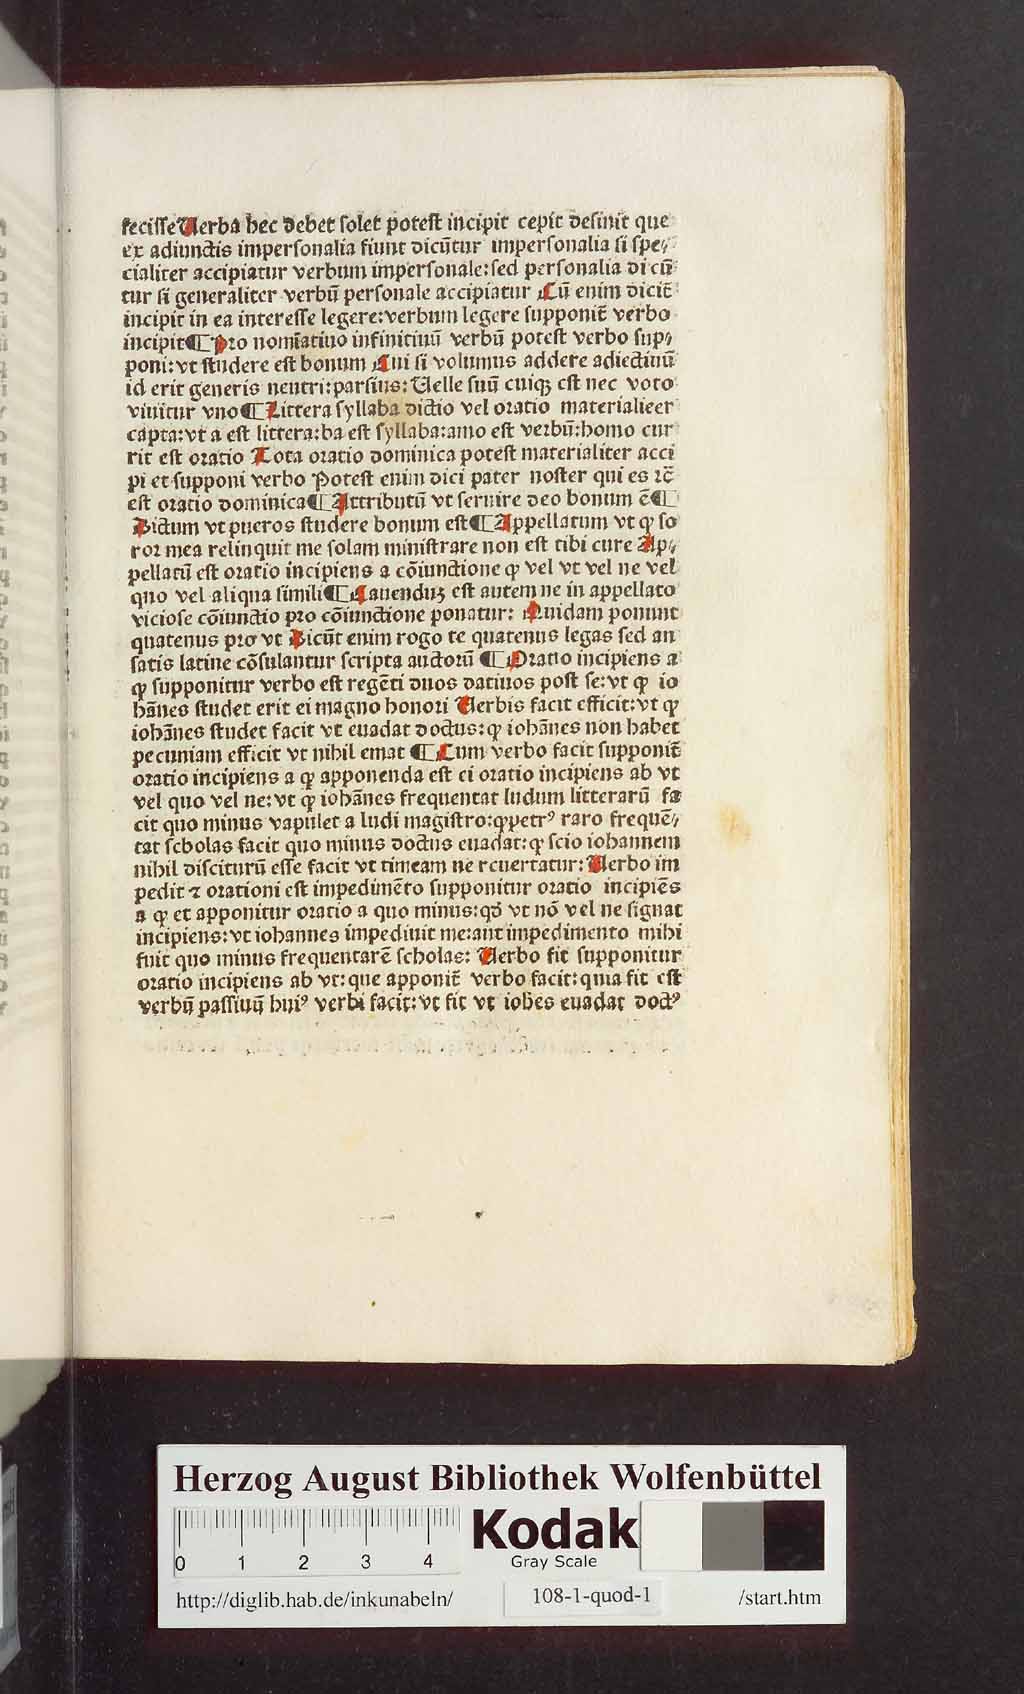 fecisse Uerba hec debet solet potest incipit cepit desinit que
ex adiunctis impersonalia fiunt dicūtur impersonalia si spe⸗
cialiter accipiatur verbum impersonale: sed personalia dicū
tur si generaliter verbū personale accipiatur Cū enim dicit̄
incipit in ea interesse legere: verbum legere supponit̄ verbo
incipit ¶ Pro nomīatiuo infinitiuū verbū potest verbo sup⸗
poni: vt studere est bonum Cui si volumus addere adiectiuū
id erit generis neutri: parsius: Uelle suū cuiqꝫ est nec voto
viuitur vno ¶ Littera syllaba dictio vel oratio materialieer
capta: vt a est littera: ba est syllaba: amo est verbū: homo cur
rit est oratio Tota oratio dominica potest materialiter acci
pi et supponi verbo Potest enim dici pater noster qui es ⁊c̄
est oratio dominica ¶ Attributū vt seruire deo bonum ē ¶
Dictum vt pueros studere bonum est ¶ Appellatum vt ꝙ so
ror mea relinquit me solam ministrare non est tibi cure Ap⸗
pellatū est oratio incipiens a cōiunctione ꝙ vel vt vel ne vel
quo vel aliqua simili ¶ Cauenduꝫ est autem ne in appellato
viciose cōiunctio pro cōiunctione ponatur: Quidam ponunt
quatenus pro vt Dicūt enim rogo te quatenus legas sed an
satis latine cōsulantur scripta auctorū ¶ Oratio incipiens a
ꝙ supponitur verbo est regēti duos datiuos post se: vt ꝙ io
hānes studet erit ei magno honori Uerbis facit efficit: vt ꝙ
iohānes studet facit vt euadat doctus: ꝙ iohānes non habet
pecuniam efficit vt nihil emat ¶ Cum verbo facit supponit̄
oratio incipiens a ꝙ apponenda est ei oratio incipiens ab vt
vel quo vel ne: vt ꝙ iohānes frequentat ludum litterarū fa
cit quo minus vapulet a ludi magistro: ꝙ petrꝰ raro frequē⸗
tat scholas facit quo minus doctus euadat: ꝙ scio iohannem
nihil disciturū esse facit vt timeam ne reuertatur: Uerbo im
pedit ⁊ orationi est impedimēto supponitur oratio incipiēs
a ꝙ et apponitur oratio a quo minus: qđ vt nō vel ne signat
incipiens: vt iohannes impediuit me: aut impedimento mihi
fuit quo minus frequentarē scholas: Uerbo fit supponitur
oratio incipiens ab vt: que apponit̄ verbo facit: quia fit est
verbū passiuū huiꝰ verbi facit: vt fit vt iohēs euadat doctꝰ
Herzog August Bibliothek Wolfenbüttel
0 1 2 3 4
Kodak
Gray Scale
http://diglib.hab.de/inkunabeln/ 108-1-quod-1 /start.htm